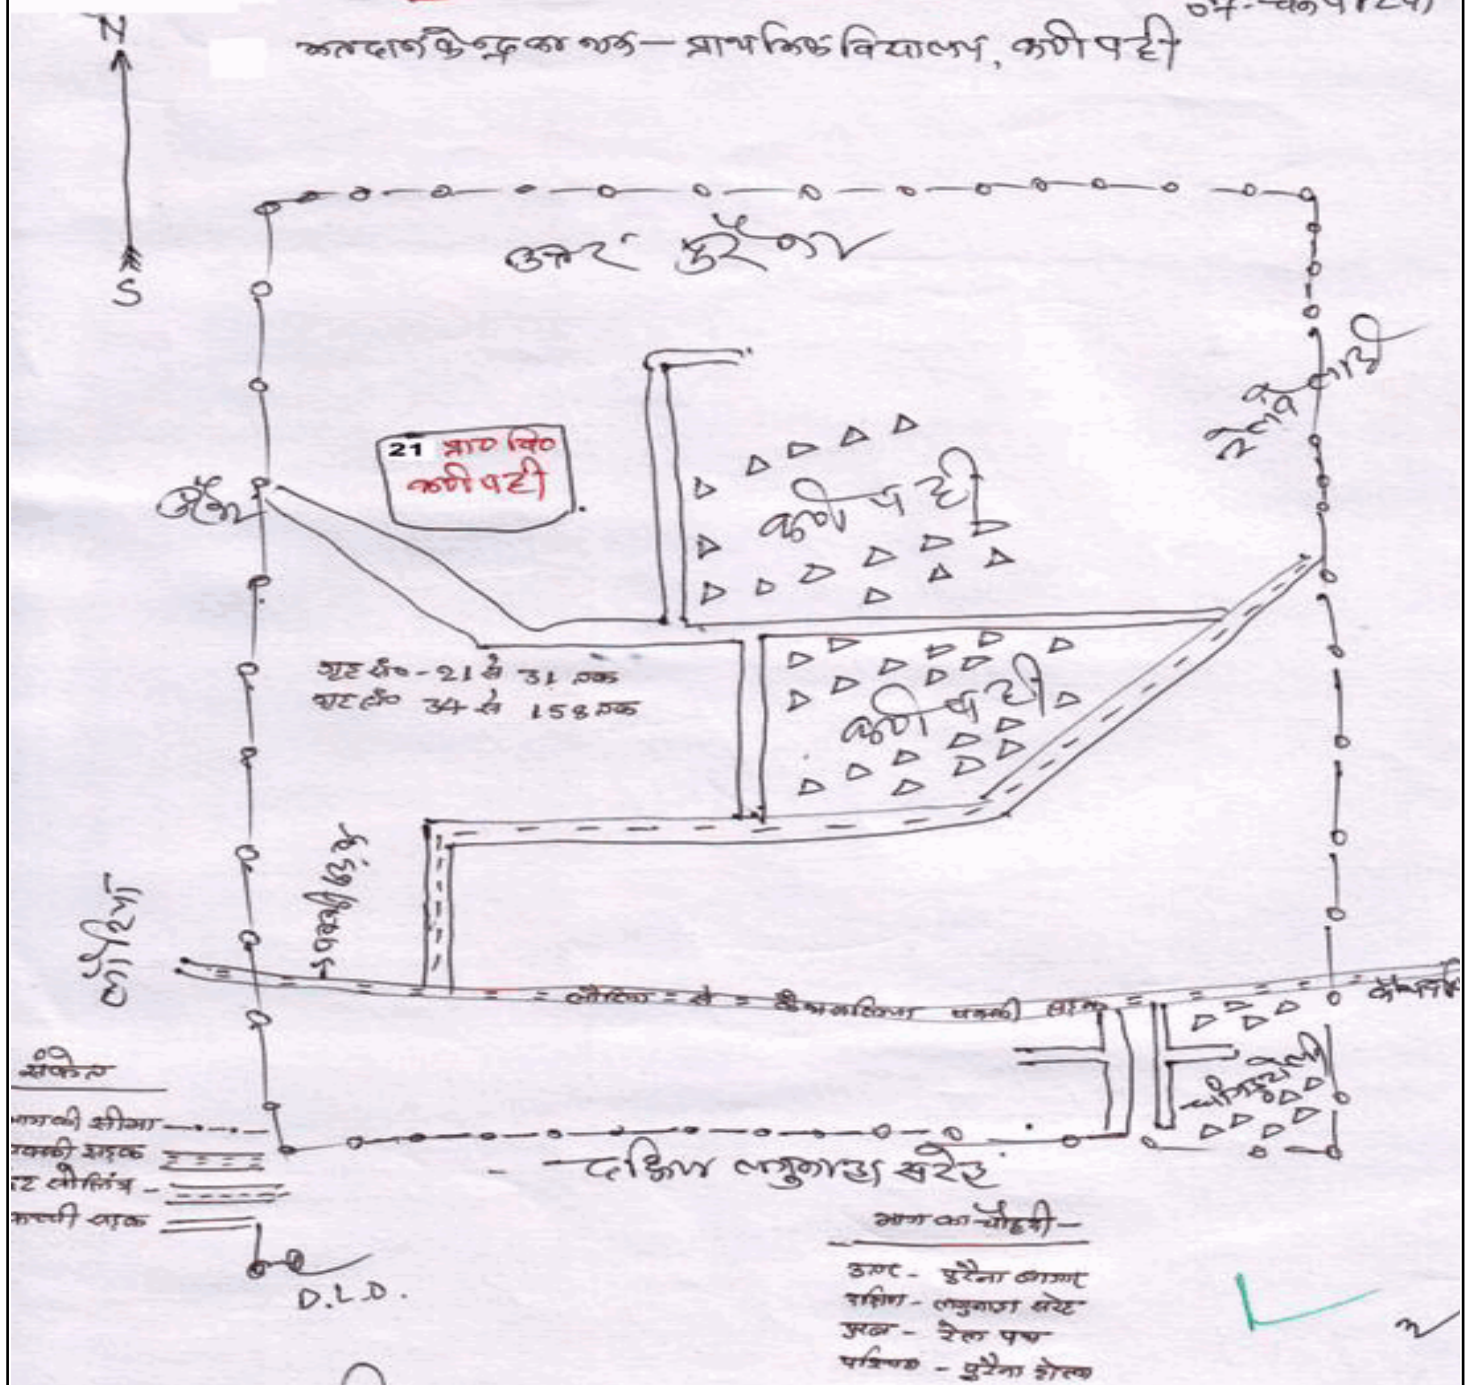 N
मतदान केन्द्र का नाम – प्राथमिक विद्यालय, कर्णपट्टी
S
उत्तर पुरैना
रेलवे लाइन
21 प्रा० वि०
कर्णपट्टी
कर्णपट्टी
गृह सं० - 21 से 31 तक
गृह सं० 34 से 158 तक
कर्णपट्टी
पक्की सड़क
लौरिया
लौरिया से पक्की सड़क
संकेत
भाग की सीमा
पक्की सड़क
कच्ची सड़क
दक्षिण लगुनाहा सरेह
D.L.D.
भाग का चौहद्दी –
उत्तर - पुरैना
दक्षिण - लगुनाहा सरेह
पूरब - रेल पथ
पश्चिम - पुरैना